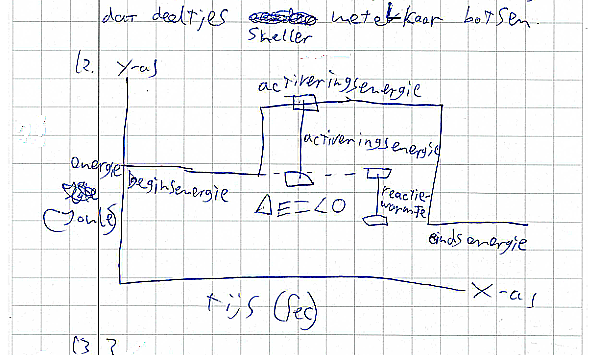 dat deeltjes met elkaar botsen.
sneller
12. Y-as
activeringsenergie
activeringsenergie
energie
beginsenergie
(Joule)
reactie-
warmte
ΔE=<0
eindsenergie
X-as
tijs (sec)
13 ?